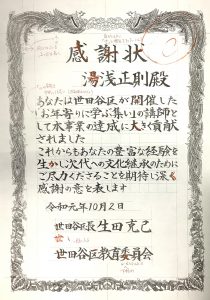 感謝状
湯浅正則殿
あなたは世田谷区が開催した
「お年寄りに学ぶ集い」の講師と
して本事業の達成に大きく貢献
されました
これからもあなたの豊富な経験を
生かし次代への文化継承のために
ご尽力くださることを期待し深く
感謝の意を表します
令和元年10月2日
世田谷区長 生田克己
世田谷区教育委員会